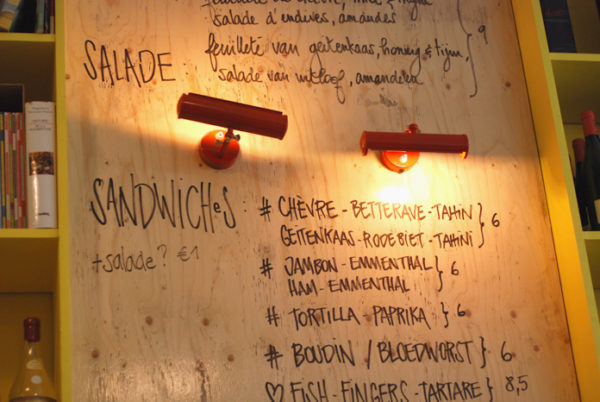 salade d'endives, amandes
SALADE : feuilleté van geitenkaas, honing & tijm, } 9
salade van witloof, amandelen
SANDWICHeS : # CHÈVRE - BETTERAVE - TAHIN } 6
GEITENKAAS - RODE BIET - TAHINI
+ salade? €1
# JAMBON - EMMENTHAL } 6
HAM - EMMENTHAL
# TORTILLA - PAPRIKA } 6
# BOUDIN / BLOEDWORST } 6
♡ FISH - FINGERS - TARTARE } 8,5